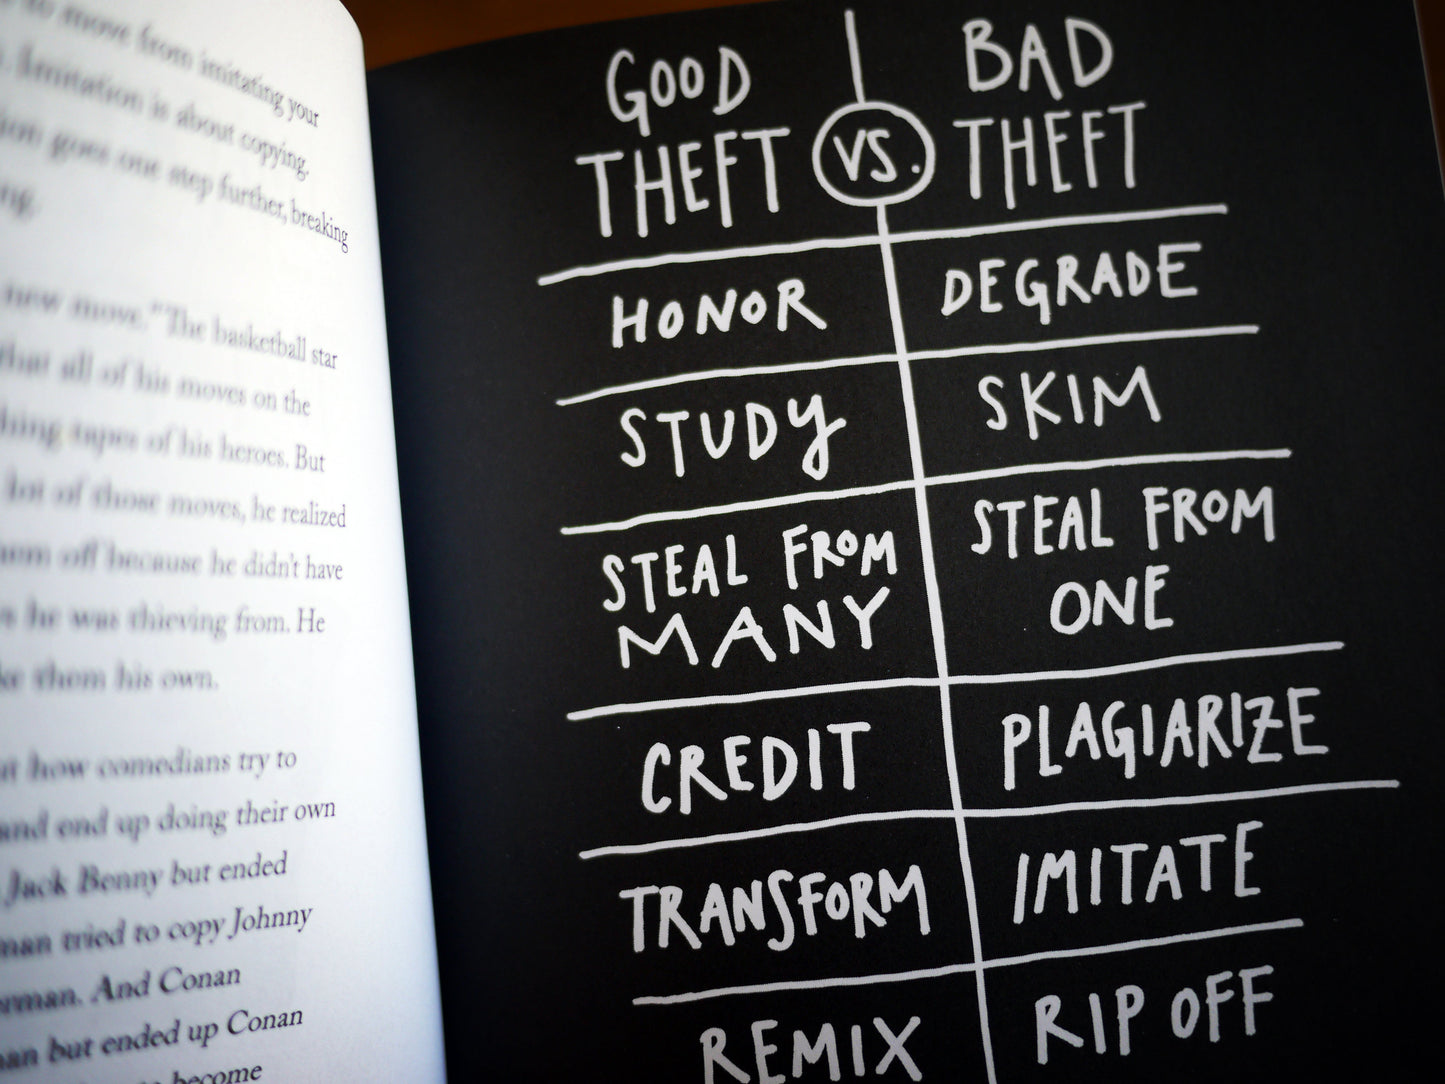 to move from imitating your
. Imitation is about copying.
goes one step further, breaking
new move.” The basketball star
that all of his moves on the
tapes of his heroes. But
lot of those moves, he realized
off because he didn’t have
he was thieving from. He
them his own.
how comedians try to
and end up doing their own
Jack Benny but ended
tried to copy Johnny
And Conan
but ended up Conan
become
GOOD THEFT VS. BAD THEFT
HONOR DEGRADE
STUDY SKIM
STEAL FROM MANY STEAL FROM ONE
CREDIT PLAGIARIZE
TRANSFORM IMITATE
REMIX RIP OFF